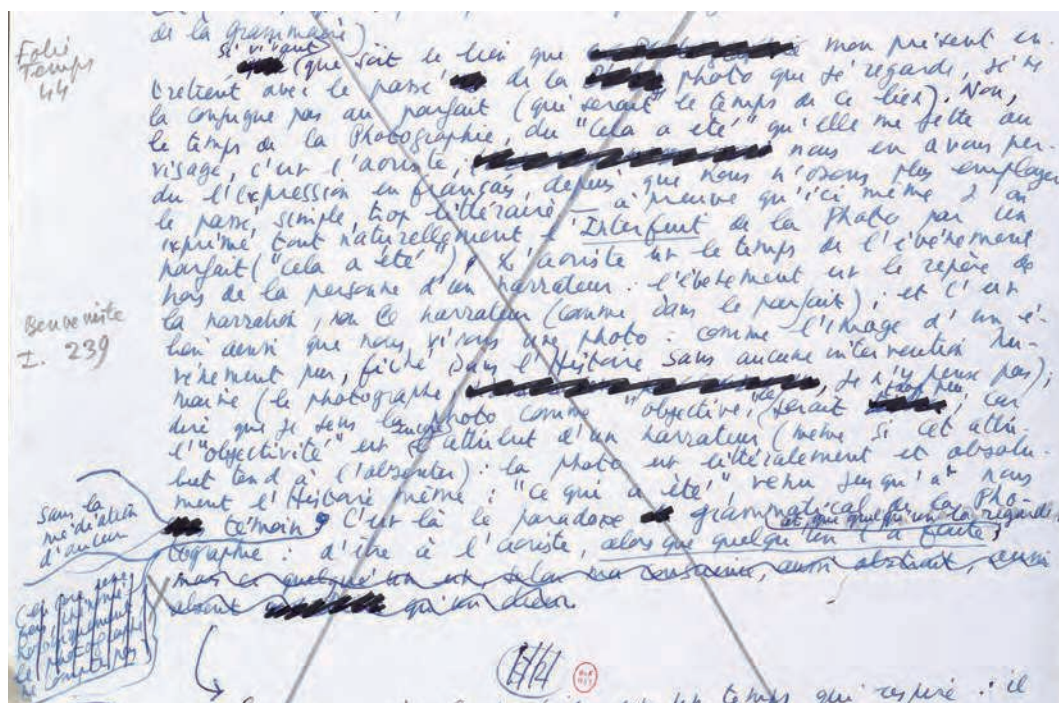 de la grammaire)
Folié
Temps
44
Si vivant
(que soit le lien que mon présent en-
tretient avec le passé de la photo que je regarde, je ne
la conjugue pas au parfait (qui serait le temps de ce lien). Non,
le temps de la Photographie, du "Cela a été" qu'elle me jette au
visage, c'est l'aoriste, nous en avons per-
du l'expression en français, depuis que nous n'osons plus employer
le passé simple, trop littéraire — à preuve qu'ici même on
exprime tout naturellement l'Interfuit de la Photo par un
parfait ("cela a été"). L'aoriste est le temps de l'événement
hors de la personne d'un narrateur. l'événement est le repère de
la narration, non le narrateur (comme dans le parfait); et c'est
Benveniste
I. 239
bien ainsi que nous visons une photo: comme l'image d'un é-
vénement pur, fiché dans l'Histoire sans aucune intervention hu-
maine (le photographe, je n'y pense pas);
dire que je sens la photo comme "objective", serait trop peu, car
l'"objectivité" est l'attribut d'un narrateur (même si cet attri-
but tend à l'absenter): la photo est littéralement et absolu-
ment l'Histoire même: "ce qui a été", venu jusqu'à nous
sans la
médiation
d'aucun
témoin. C'est là le paradoxe grammatical de la Pho-
et que quelqu'un la regarde
tographie: d'être à l'aoriste, alors que quelqu'un l'a faite,
mais ce quelqu'un est, selon ma conscience, aussi abstrait, aussi
absent qu'un dieu
le photographe
ne compte pas)
un temps qui respire: il